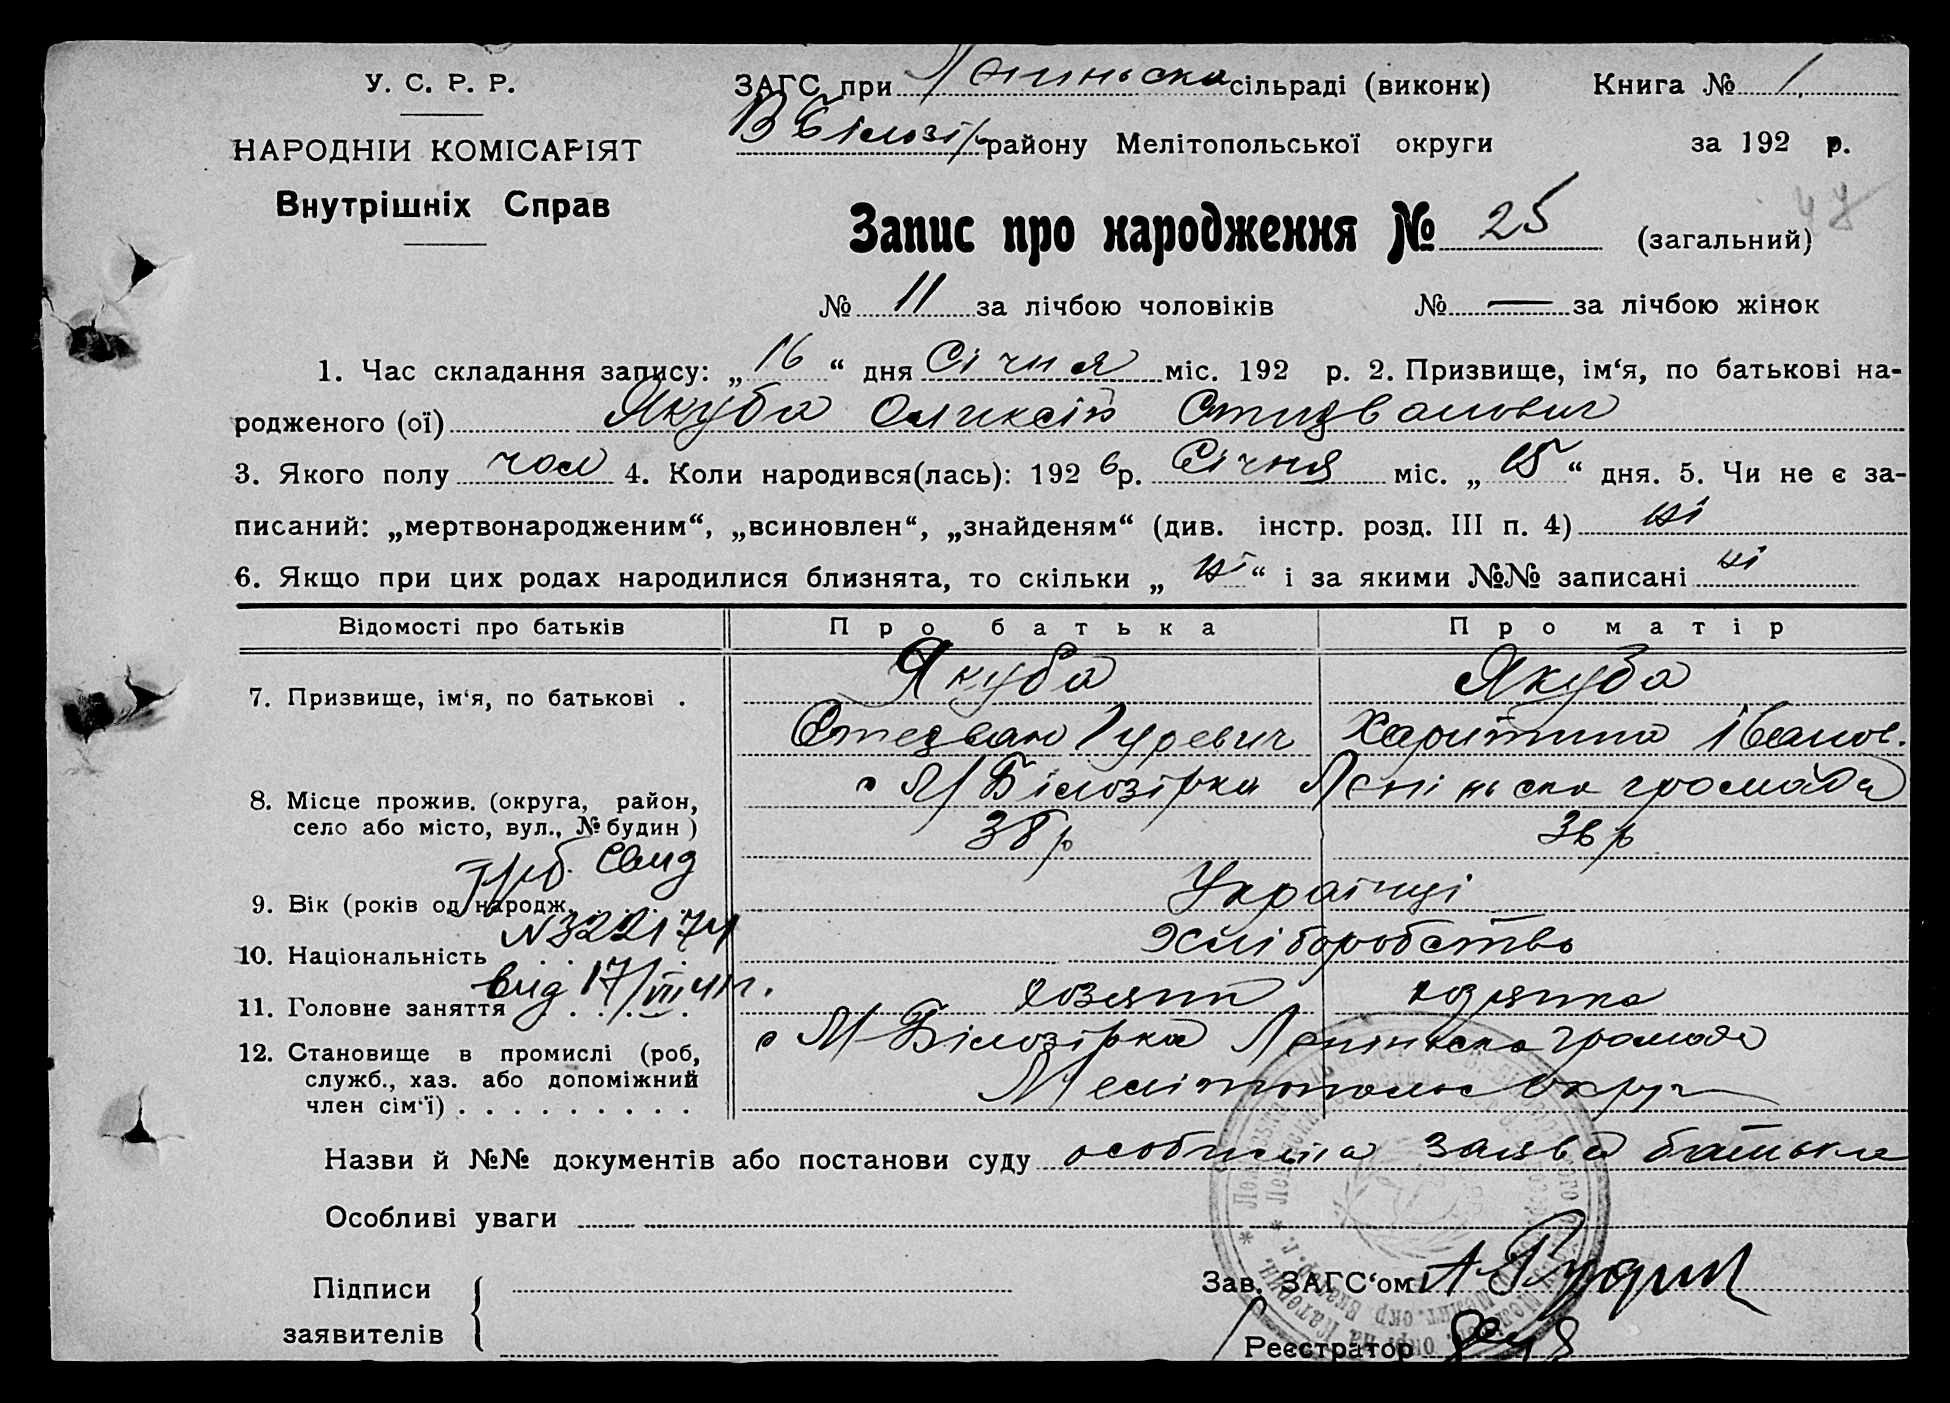 У. С. Р. Р.
НАРОДНІЙ КОМІСАРІЯТ
Внутрішніх Справ
ЗАГС при Леніньска сільраді (виконк) Книга № 1
В Білозір району Мелітопольської округи за 192 р.
Запис про народження № 25 (загальний)
№ 11 за лічбою чоловіків № — за лічбою жінок
1. Час складання запису: „16“ дня Січня міс. 192 р. 2. Призвище, ім‘я, по батькові на-
родженого (ої) Якуба Оликсій Стицванович
3. Якого полу чол 4. Коли народився(лась): 1926р. Січня міс. „15“ дня. 5. Чи не є за-
писаний: „мертвонародженим“, „всиновлен“, „знайденям“ (див. інстр. розд. III п. 4) ні
6. Якщо при цих родах народилися близнята, то скільки „ні“ і за якими №№ записані ні
Відомості про батьків Про батька Про матір
7. Призвище, ім‘я, по батькові . Якуба Якуба
Гуревич Іванов.
8. Місце прожив. (округа, район,
село або місто, вул., № будин)
с М Білозірка Леніньска громада
38 р 36 р
9. Вік (років од народж.
Українці
10. Національність
Хліборобство
№322174
вид 17/VII 41 г.
11. Головне заняття
хозяин хозяика
12. Становище в промислі (роб,
служб., хаз. або допоміжний
член сім‘ї)
с М-Білозірка Леніньска громада
Мелітопольс округ
Назви й №№ документів або постанови суду особиста заява батька
Особливі уваги
Підписи
заявителів
Зав. ЗАГС‘ом
Реєстратор